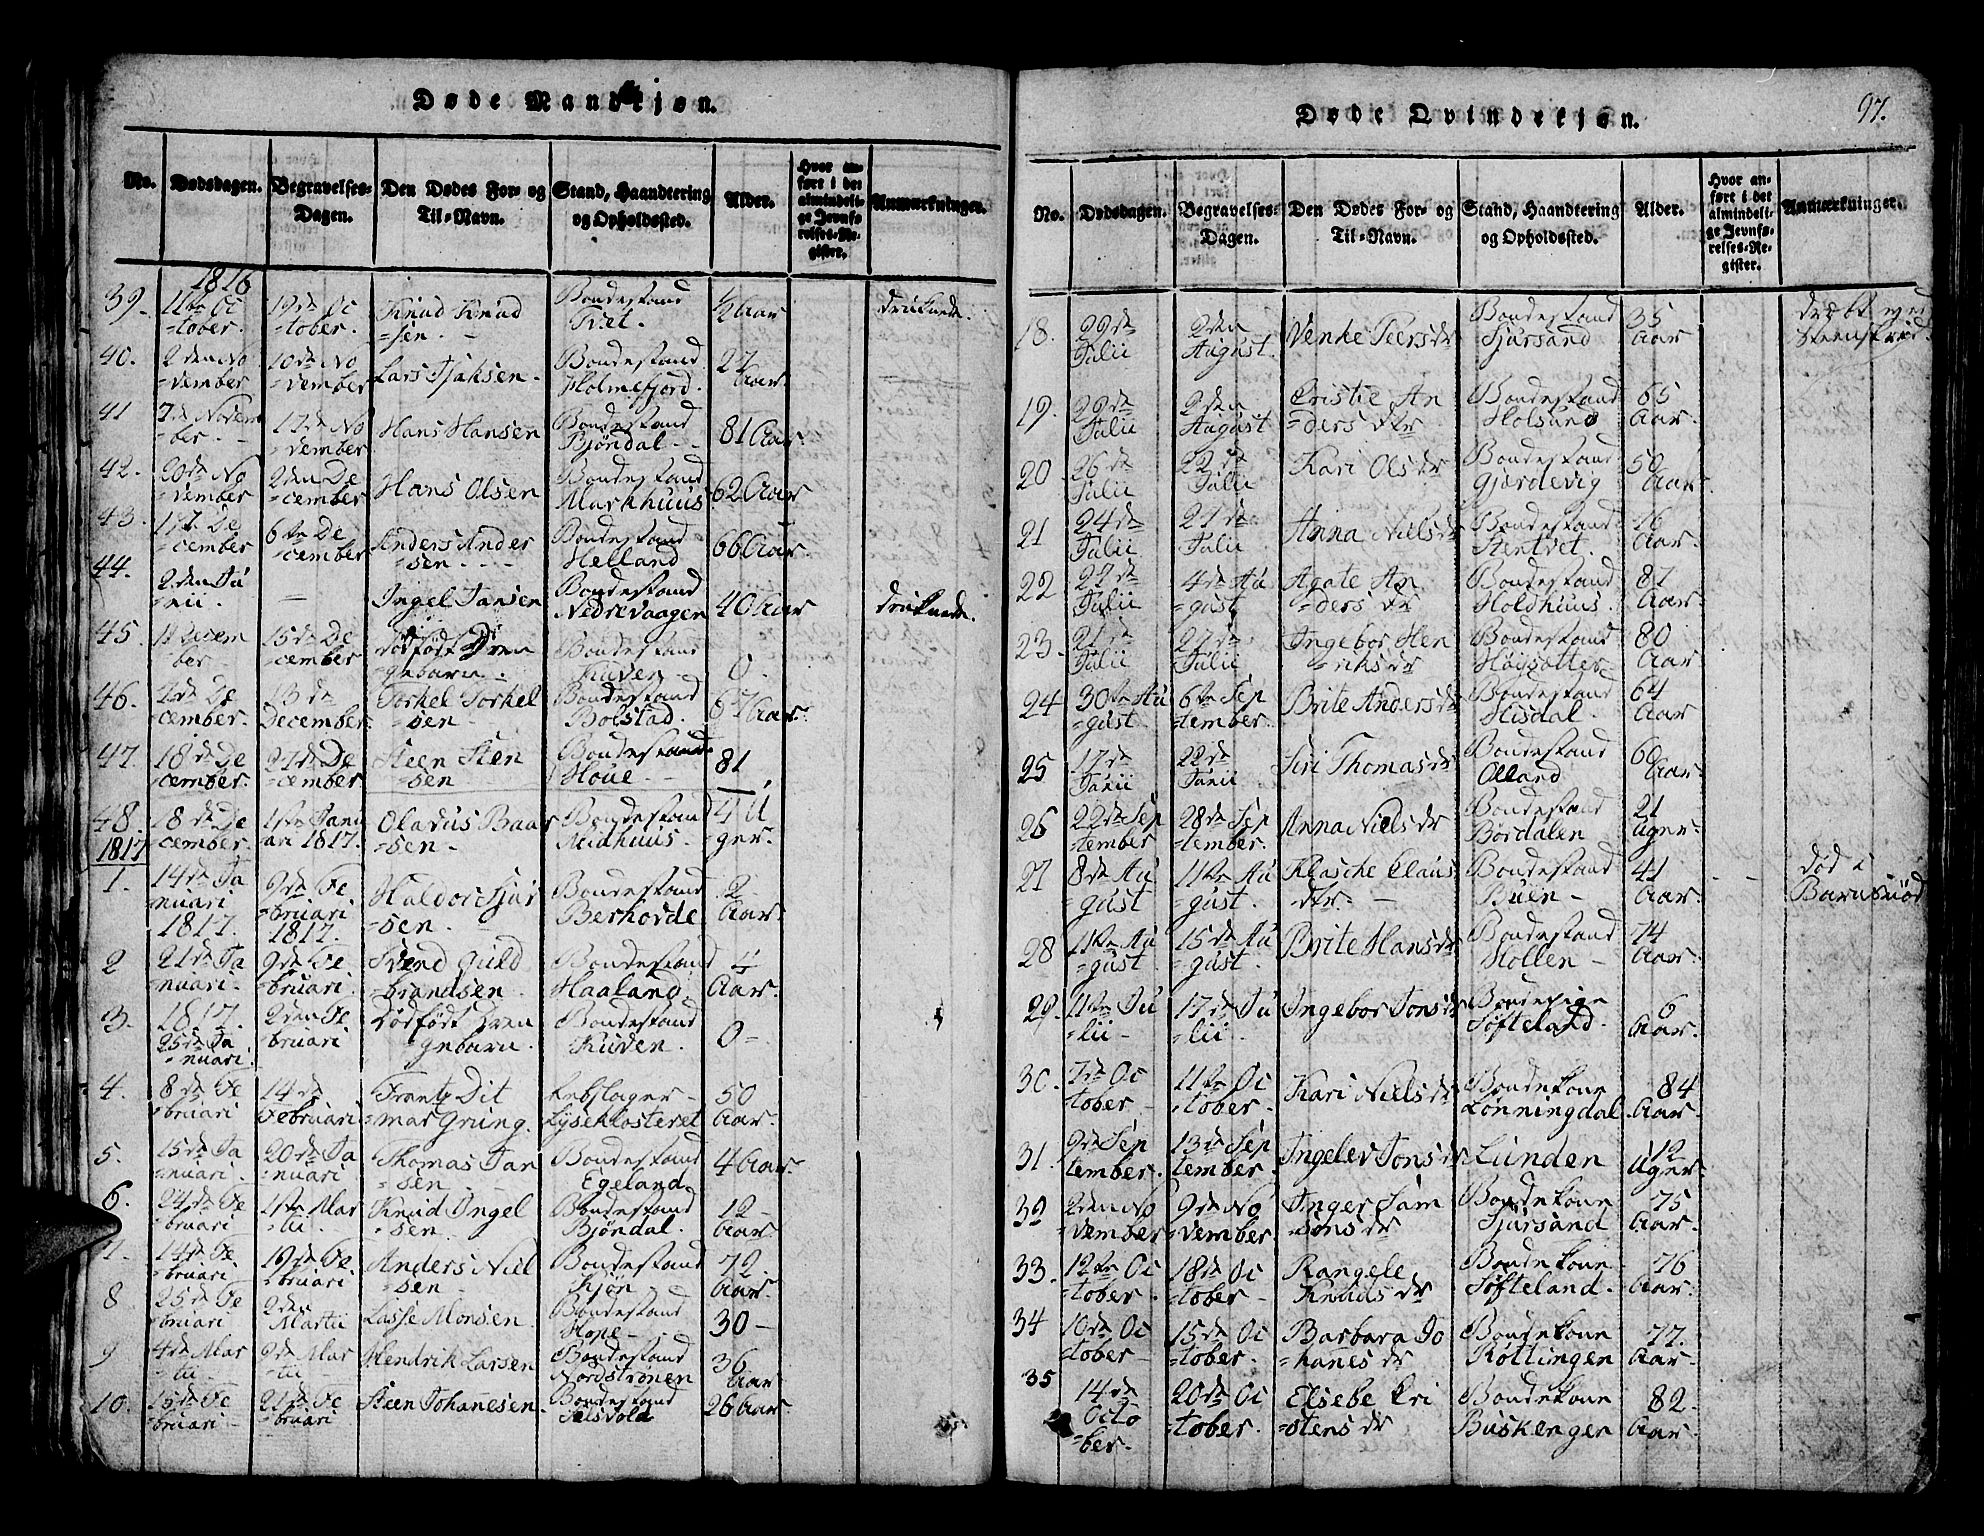 Døde Mandkjøn.
No. Dødsdagen. Begravelses-Dagen. Den Dødes For- og Til-Navn. Stand, Haandtering og Opholdssted. Alder. Hvor anført i det almindelige Jevnførelses-Register. Anmærkninger.
1816
39. 11te October. 19de October. Knud Knudsen. Bondestand Tvet. ½ Aar druknede.
40. 2den November 10de November Lars Sjaksen. Bondestand Holmefjord. 27 Aar.
41 7de November. 17de November Hans Hansen Bondestand Bjöndal 81 Aar.
42. 20de November 2den December Hans Olsen Bondestand Markhuus 62 Aar
43. 1de December 6te December Anders Andersen Bondestand Helland 66 Aar.
44. 2den Junii. — Ingel Jansen Bondestand Nedrevaagen 40 Aar druknede.
45. 11 December 15de December dödfödt Drengebarn. Bondestand Kuven 0.
46. 2de December. 13de December. Torkel Torkelsen Bondestand Bolstad. 67 Aar.
47. 18de December. 27de December Steen Stensen Bondestand Houe 81
48. 18de December. 1ste Januari 1817. Olavus Baarsen Bondestand Midhuus. 4 Uger.
1817
1. 14de Januari 1817. 9de Februari 1817. Haldor Sjursen. Bondestand Berhorde 2 Aar.
2 21de Januari. 9de Februari. Svend Guldbrandsen Bondestand Haaland 4 Aar.
3. 1817. 25de Januari. 2den Februari Dödfödt Drengebarn. Bondestand Kuven. 0
4. 8de Februari 14de Februari Frantz Ditmar Grung. Rebslager Lyseklosteret 50 Aar.
5. 15de Januari 20de Januari Thomas Jansen. Bondestand Egeland 4 Aar.
6. 24de Februari 1ste Martii Knud Ingelsen. Bondestand Bjöndal. 12 Aar.
7. 14de Februari 19de Februari Anders Nielsen Bondestand Kjön 72. Aar.
8 25de Februari 2den Martii Lasse Monsen. Bondestand Hope 30
9 4de Martii 9de Martii Hendrik Larsen Bondestand Nordströnen 36 Aar
10. 15de Februari 21de Februari Steen Johanesen. Bondestand 26 Aar.
Døde Qvindekjøn. 97.
No. Dødsdagen. Begravelses-Dagen. Den Dødes For- og Til-Navn. Stand, Haandtering og Opholdssted. Alder. Hvor anført i det almindelige Jevnførelses-Register. Anmærkninger.
18. 29de Julii 2den August. Venke Peersdr Bondestand Sjursand 35 Aar dræbt ved Steenskred.
19. 29de Julii 2den August Cristie Andersdtr Bondestand Holsund 65 Aar.
20 26de Julii 22de Julii Kari Olsdr Bondestand Gjerdevig 50 Aar
21 24de Julii 21de Julii Anna Nielsdr Bondestand Stentvet. 16 Aar.
22 22de Julii 4de August Agate Andersdr Bondestand Holdhuus. 87 Aar.
23. 21de Julii 27de Julii Ingebor Henriksdr Bondestand Høysæter 80 Aar
24 30te August 6te September. Brite Andersdr Bondestand Hisdal. 64 Aar
25 17de Junii 22de Junii Siri Thomasdr Bondestand Olland 60 Aar.
26 22de September 28de September. Anna Nielsdr Bondestand Børdalen 21 Uger.
27 8de August 11te August. Klasche Clausdtr. Bondestand Buen 41 Aar. død i Barnsnød
28 11te August. 15de August. Brite Hansdr Bondestand Hollen 74 Aar.
29. 11te Julii 17de Julii. Ingebor Jonsdr Bondepige Søfteland. 6 Aar.
30. 7de October 11te October. Kari Nielsdr Bondekone Lønningdal. 84 Aar.
31. 9de September. 13de September Ingelev Jonsdr Lunden 12 Uger.
32 2den November 9de November Inger Samsonsdr Bondekone Sjursand 75 Aar.
33. 12te October. 18de October Rangele Knudsdr Bondekone Søfteland. 76 Aar.
34 10de October 15de October. Barbara Johanesdr Bondekone Røttingen 77. Aar.
35 14de October. 20de October. Elsebe Cristensdr Bondekone Buskengen 82 Aar.